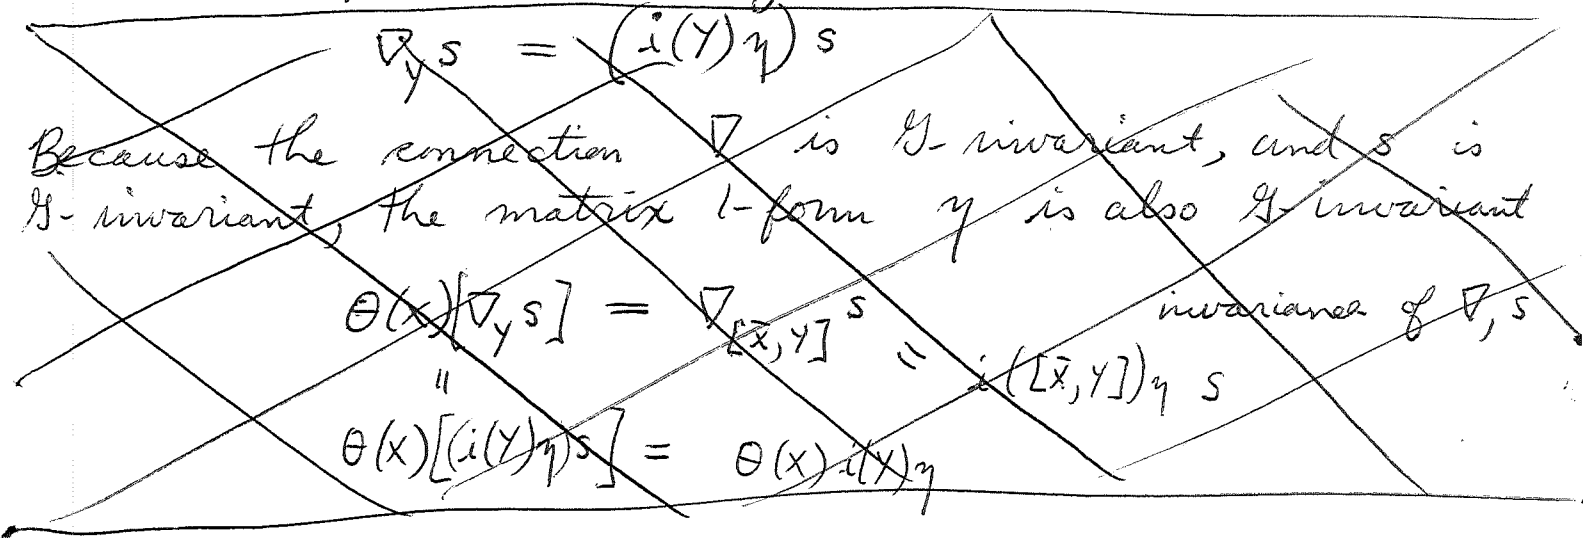 ∇_Y s = (i(Y)η) s
Because the connection ∇ is G-invariant, and s is
G-invariant, the matrix 1-form η is also G-invariant
θ(X)[∇_Y s] = ∇_{[X̄,Y]} s = i([X̄,Y])η s invariance of ∇, s
"
θ(X)[(i(Y)η)s] = θ(X) i(Y)η